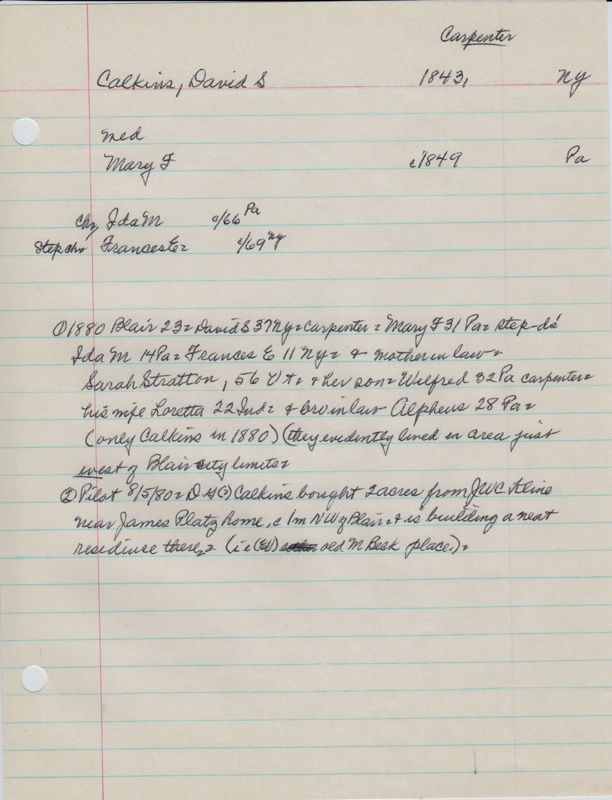 Carpenter
Calkins, David S 1843, Ny
med
Mary F c1849 Pa
Ch, Ida M c/66 Pa
Step chn Frances E= c/69 Ny
① 1880 Blair 23= David S 37 Ny= carpenter= Mary F 31 Pa= step-da
Ida M 14 Pa= Frances E 11 Ny= & mother in law=
Sarah Stratton, 56 Vt= & her son= Wilfred 32 Pa carpenter=
his wife Loretta 22 Ind= & bro in law Alpheus 28 Pa=
(only Calkins in 1880) (they evidently lived in area just
west of Blair city limits=
② Pilot 8/5/80= D (?) Calkins bought 2 acres from JWC Kline
near James Platz home, c 1m NW of Blair= & is building a neat
residence there,= (i e old M Besk place.)=